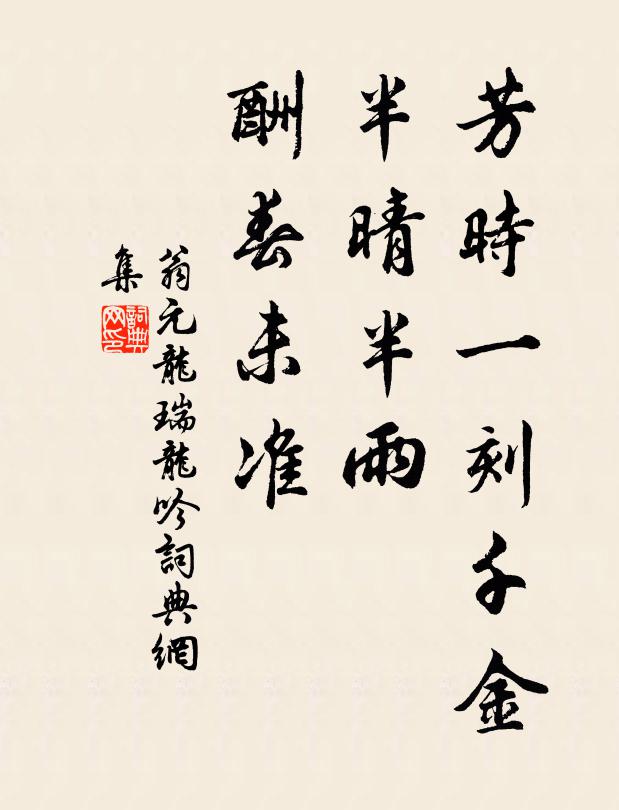 芳時一刻千金
半晴半雨
酬春未准
翁元龍瑞龍吟詞典網
集
詞典
网印